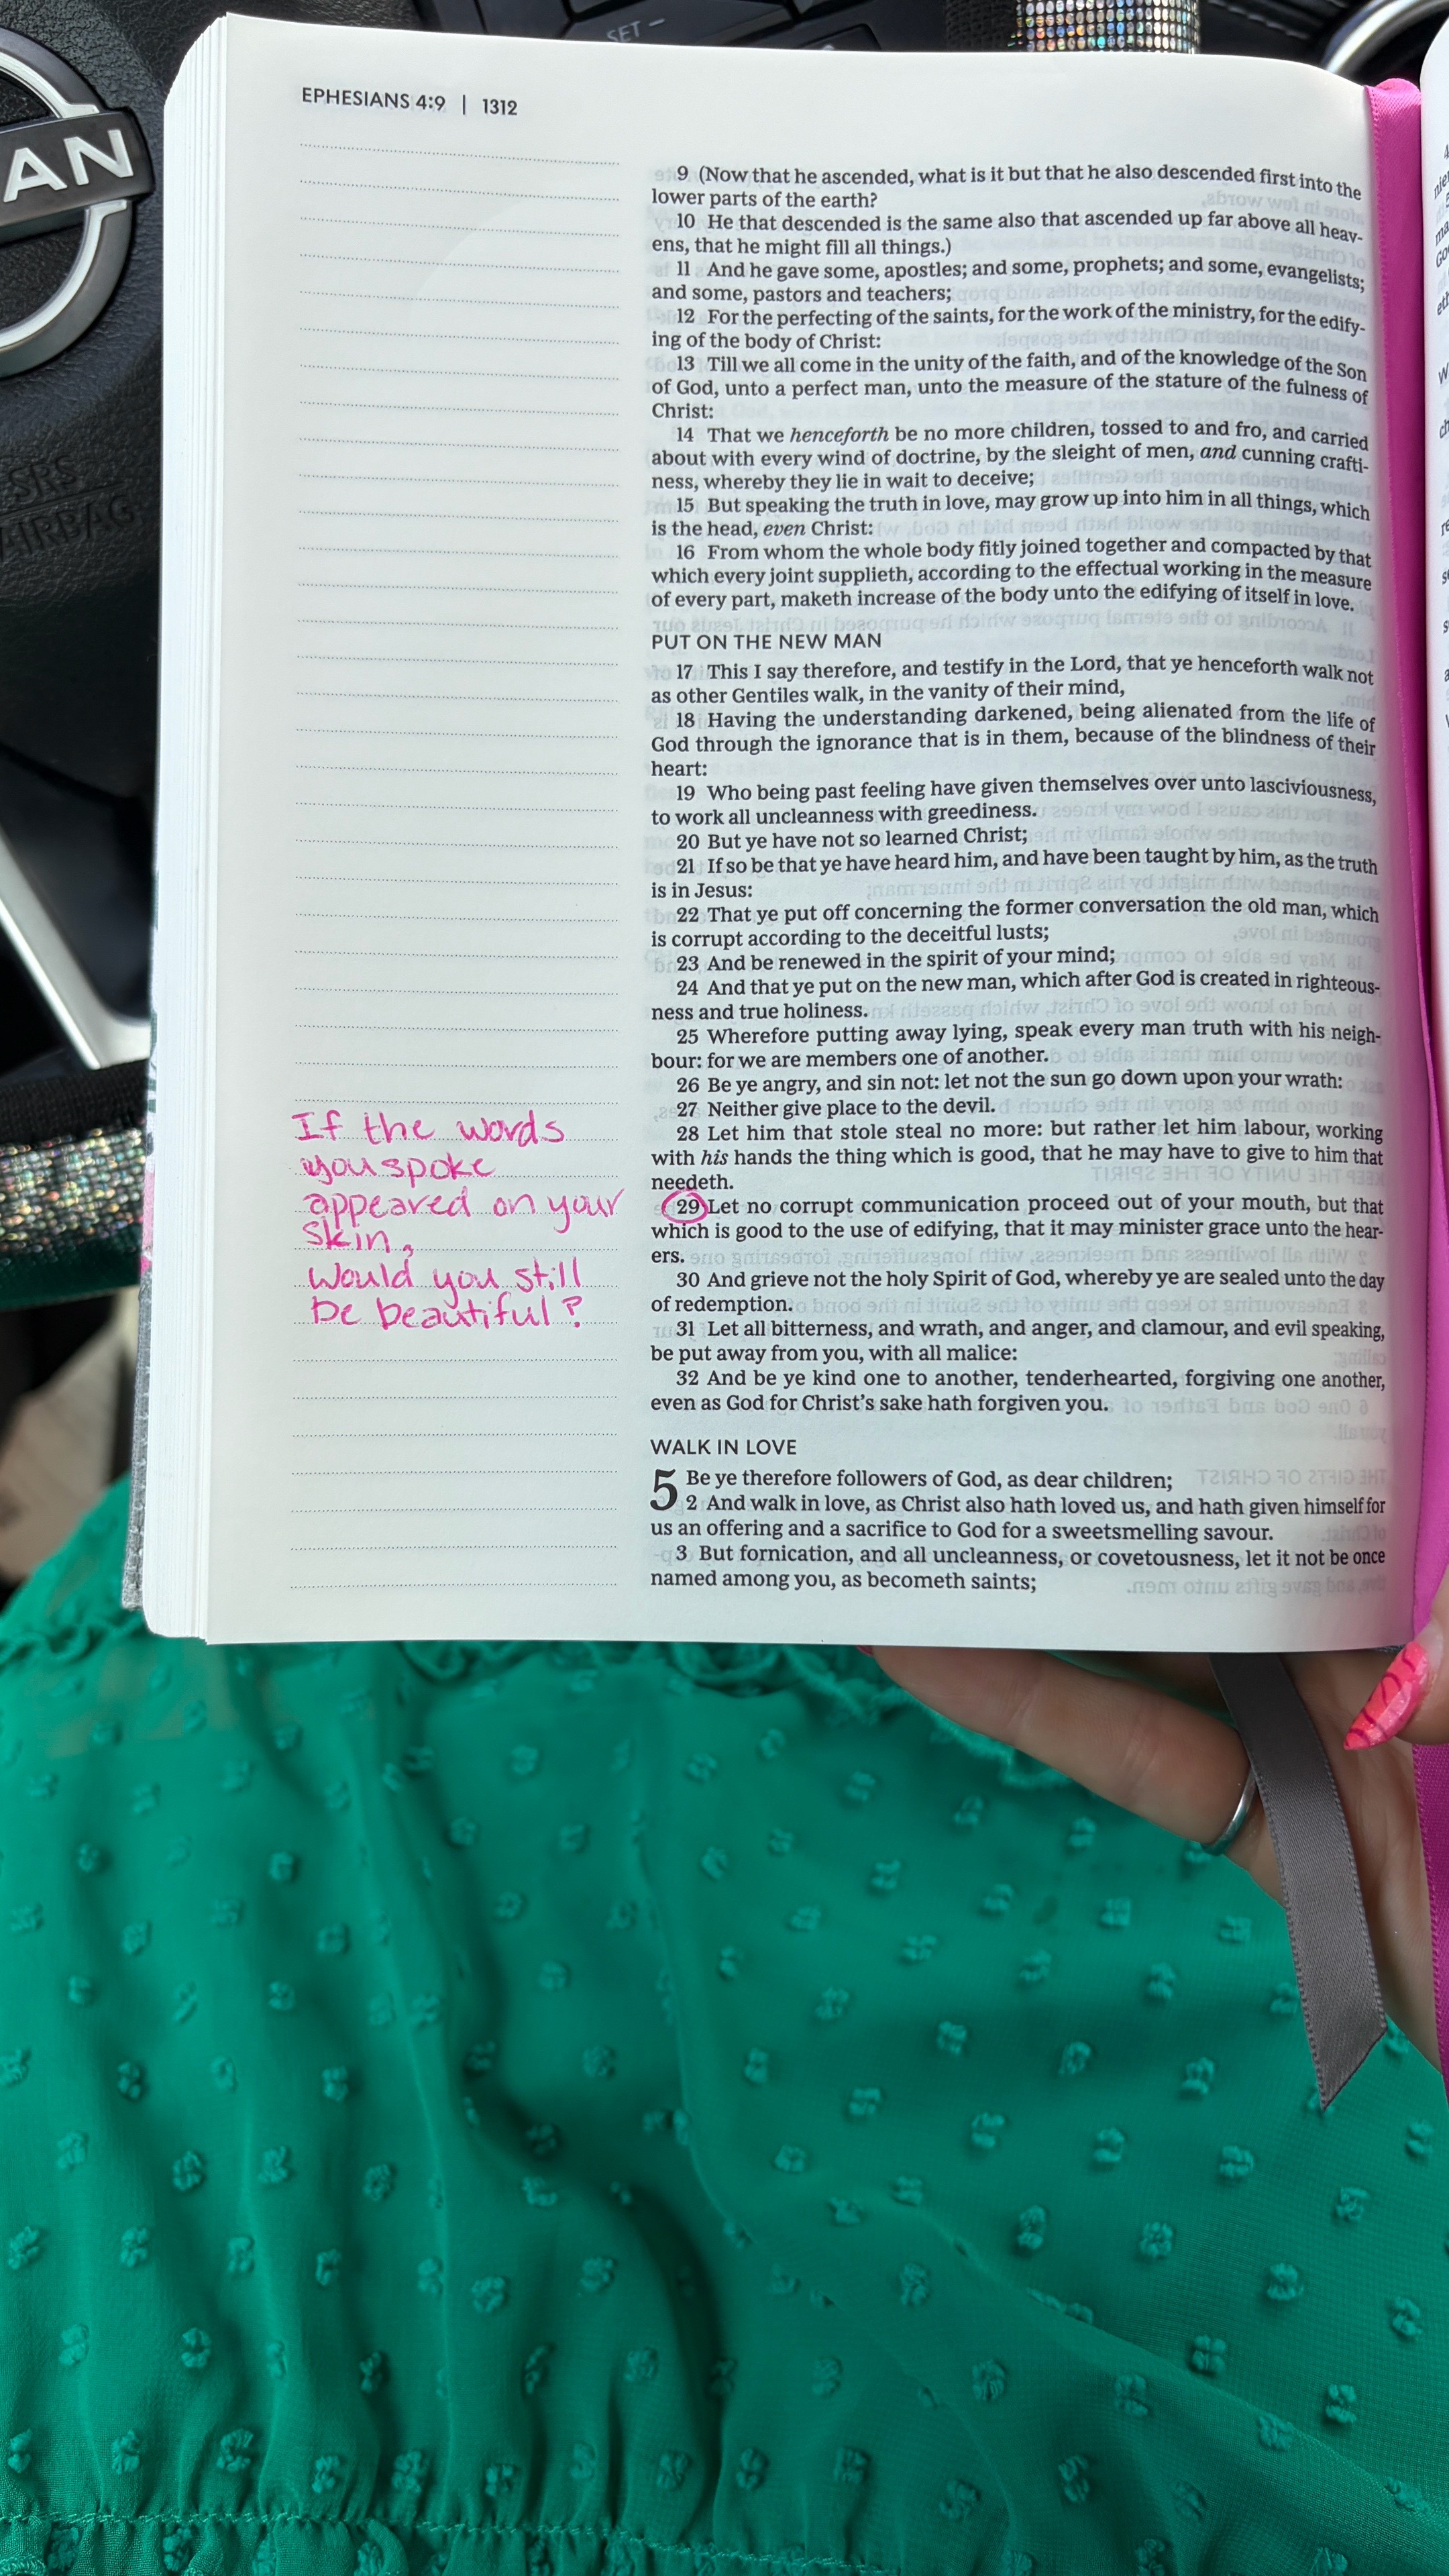 SET −
AN
SRS
AIRBAG
EPHESIANS 4:9 | 1312
9 (Now that he ascended, what is it but that he also descended first into the
lower parts of the earth?
10 He that descended is the same also that ascended up far above all heav-
ens, that he might fill all things.)
11 And he gave some, apostles; and some, prophets; and some, evangelists;
and some, pastors and teachers;
12 For the perfecting of the saints, for the work of the ministry, for the edify-
ing of the body of Christ:
13 Till we all come in the unity of the faith, and of the knowledge of the Son
of God, unto a perfect man, unto the measure of the stature of the fulness of
Christ:
14 That we henceforth be no more children, tossed to and fro, and carried
about with every wind of doctrine, by the sleight of men, and cunning crafti-
ness, whereby they lie in wait to deceive;
15 But speaking the truth in love, may grow up into him in all things, which
is the head, even Christ:
16 From whom the whole body fitly joined together and compacted by that
which every joint supplieth, according to the effectual working in the measure
of every part, maketh increase of the body unto the edifying of itself in love.
PUT ON THE NEW MAN
17 This I say therefore, and testify in the Lord, that ye henceforth walk not
as other Gentiles walk, in the vanity of their mind,
18 Having the understanding darkened, being alienated from the life of
God through the ignorance that is in them, because of the blindness of their
heart:
19 Who being past feeling have given themselves over unto lasciviousness,
to work all uncleanness with greediness.
20 But ye have not so learned Christ;
21 If so be that ye have heard him, and have been taught by him, as the truth
is in Jesus:
22 That ye put off concerning the former conversation the old man, which
is corrupt according to the deceitful lusts;
23 And be renewed in the spirit of your mind;
24 And that ye put on the new man, which after God is created in righteous-
ness and true holiness.
25 Wherefore putting away lying, speak every man truth with his neigh-
bour: for we are members one of another.
26 Be ye angry, and sin not: let not the sun go down upon your wrath:
27 Neither give place to the devil.
28 Let him that stole steal no more: but rather let him labour, working
with his hands the thing which is good, that he may have to give to him that
needeth.
29 Let no corrupt communication proceed out of your mouth, but that
which is good to the use of edifying, that it may minister grace unto the hear-
ers.
30 And grieve not the holy Spirit of God, whereby ye are sealed unto the day
of redemption.
31 Let all bitterness, and wrath, and anger, and clamour, and evil speaking,
be put away from you, with all malice:
32 And be ye kind one to another, tenderhearted, forgiving one another,
even as God for Christ's sake hath forgiven you.
WALK IN LOVE
5 Be ye therefore followers of God, as dear children;
2 And walk in love, as Christ also hath loved us, and hath given himself for
us an offering and a sacrifice to God for a sweetsmelling savour.
3 But fornication, and all uncleanness, or covetousness, let it not be once
named among you, as becometh saints;
If the words
you spoke
appeared on your
skin,
would you still
be beautiful?